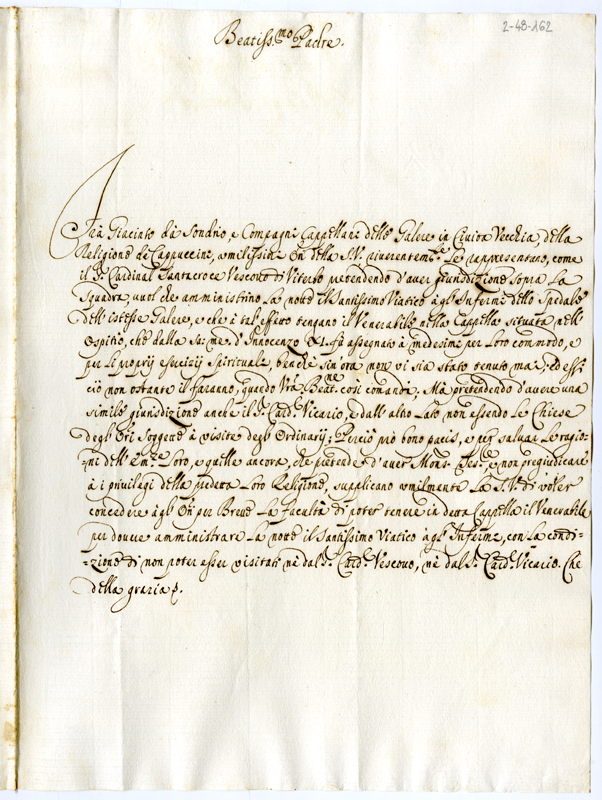 2-48-162
Beatiss.mo Padre.
Frà Giacinto da Sondrio, e Compagni Cappellani delle Galere in Civita Vecchia, della
Religione de Cappuccini, umilissimi Ori della S.V. riverentem.te Le rappresentano, come
il S.r Cardinal Santacroce Vescovo di Viterbo pretendendo d'aver giurisdizione sopra La
Squadra, vuol che amministrino La notte il Santissimo Viatico à gl' Infermi dello Spedale
dell' istesse Galere, e che à tal' effetto tengano il Venerabile nella Cappella situata nell'
Ospizio, che dalla Sa: me: d' Innocenzo XI. fù assegnato à medesimi per Loro commodo, e
per Li proprij esercizij Spirituali, benche sin' ora non vi sia stato tenuto mai; ed essi
ciò non ostante il faranno, quando Vra Beat.ne così comandi; Mà pretendendo d'avere una
simile giurisdizione anche il S.r Card.l Vicario, e dall' altro Lato non essendo Le Chiese
degl' Ori Soggette à visite degl' Ordinarij; Perciò prò bono pacis, e per salvar Le ragio-
-ni dell' Em.ze Loro, e quelle ancora, che pretende d'aver Mons.r Tes.re e non pregiudicare
à i privilegi della predetta Loro Religione, supplicano umilmente La S.V. di voler
concedere à gl' Ori per Breve La facultà di poter tenere in detta Cappella il Venerabile
per dovere amministrare La notte il Santissimo Viatico à gl' Infermi, con La condi-
-zione di non poter esser visitati nè dal S.r Card.l Vescovo, nè dal S.r Card.l Vicario. Che
della grazia &.